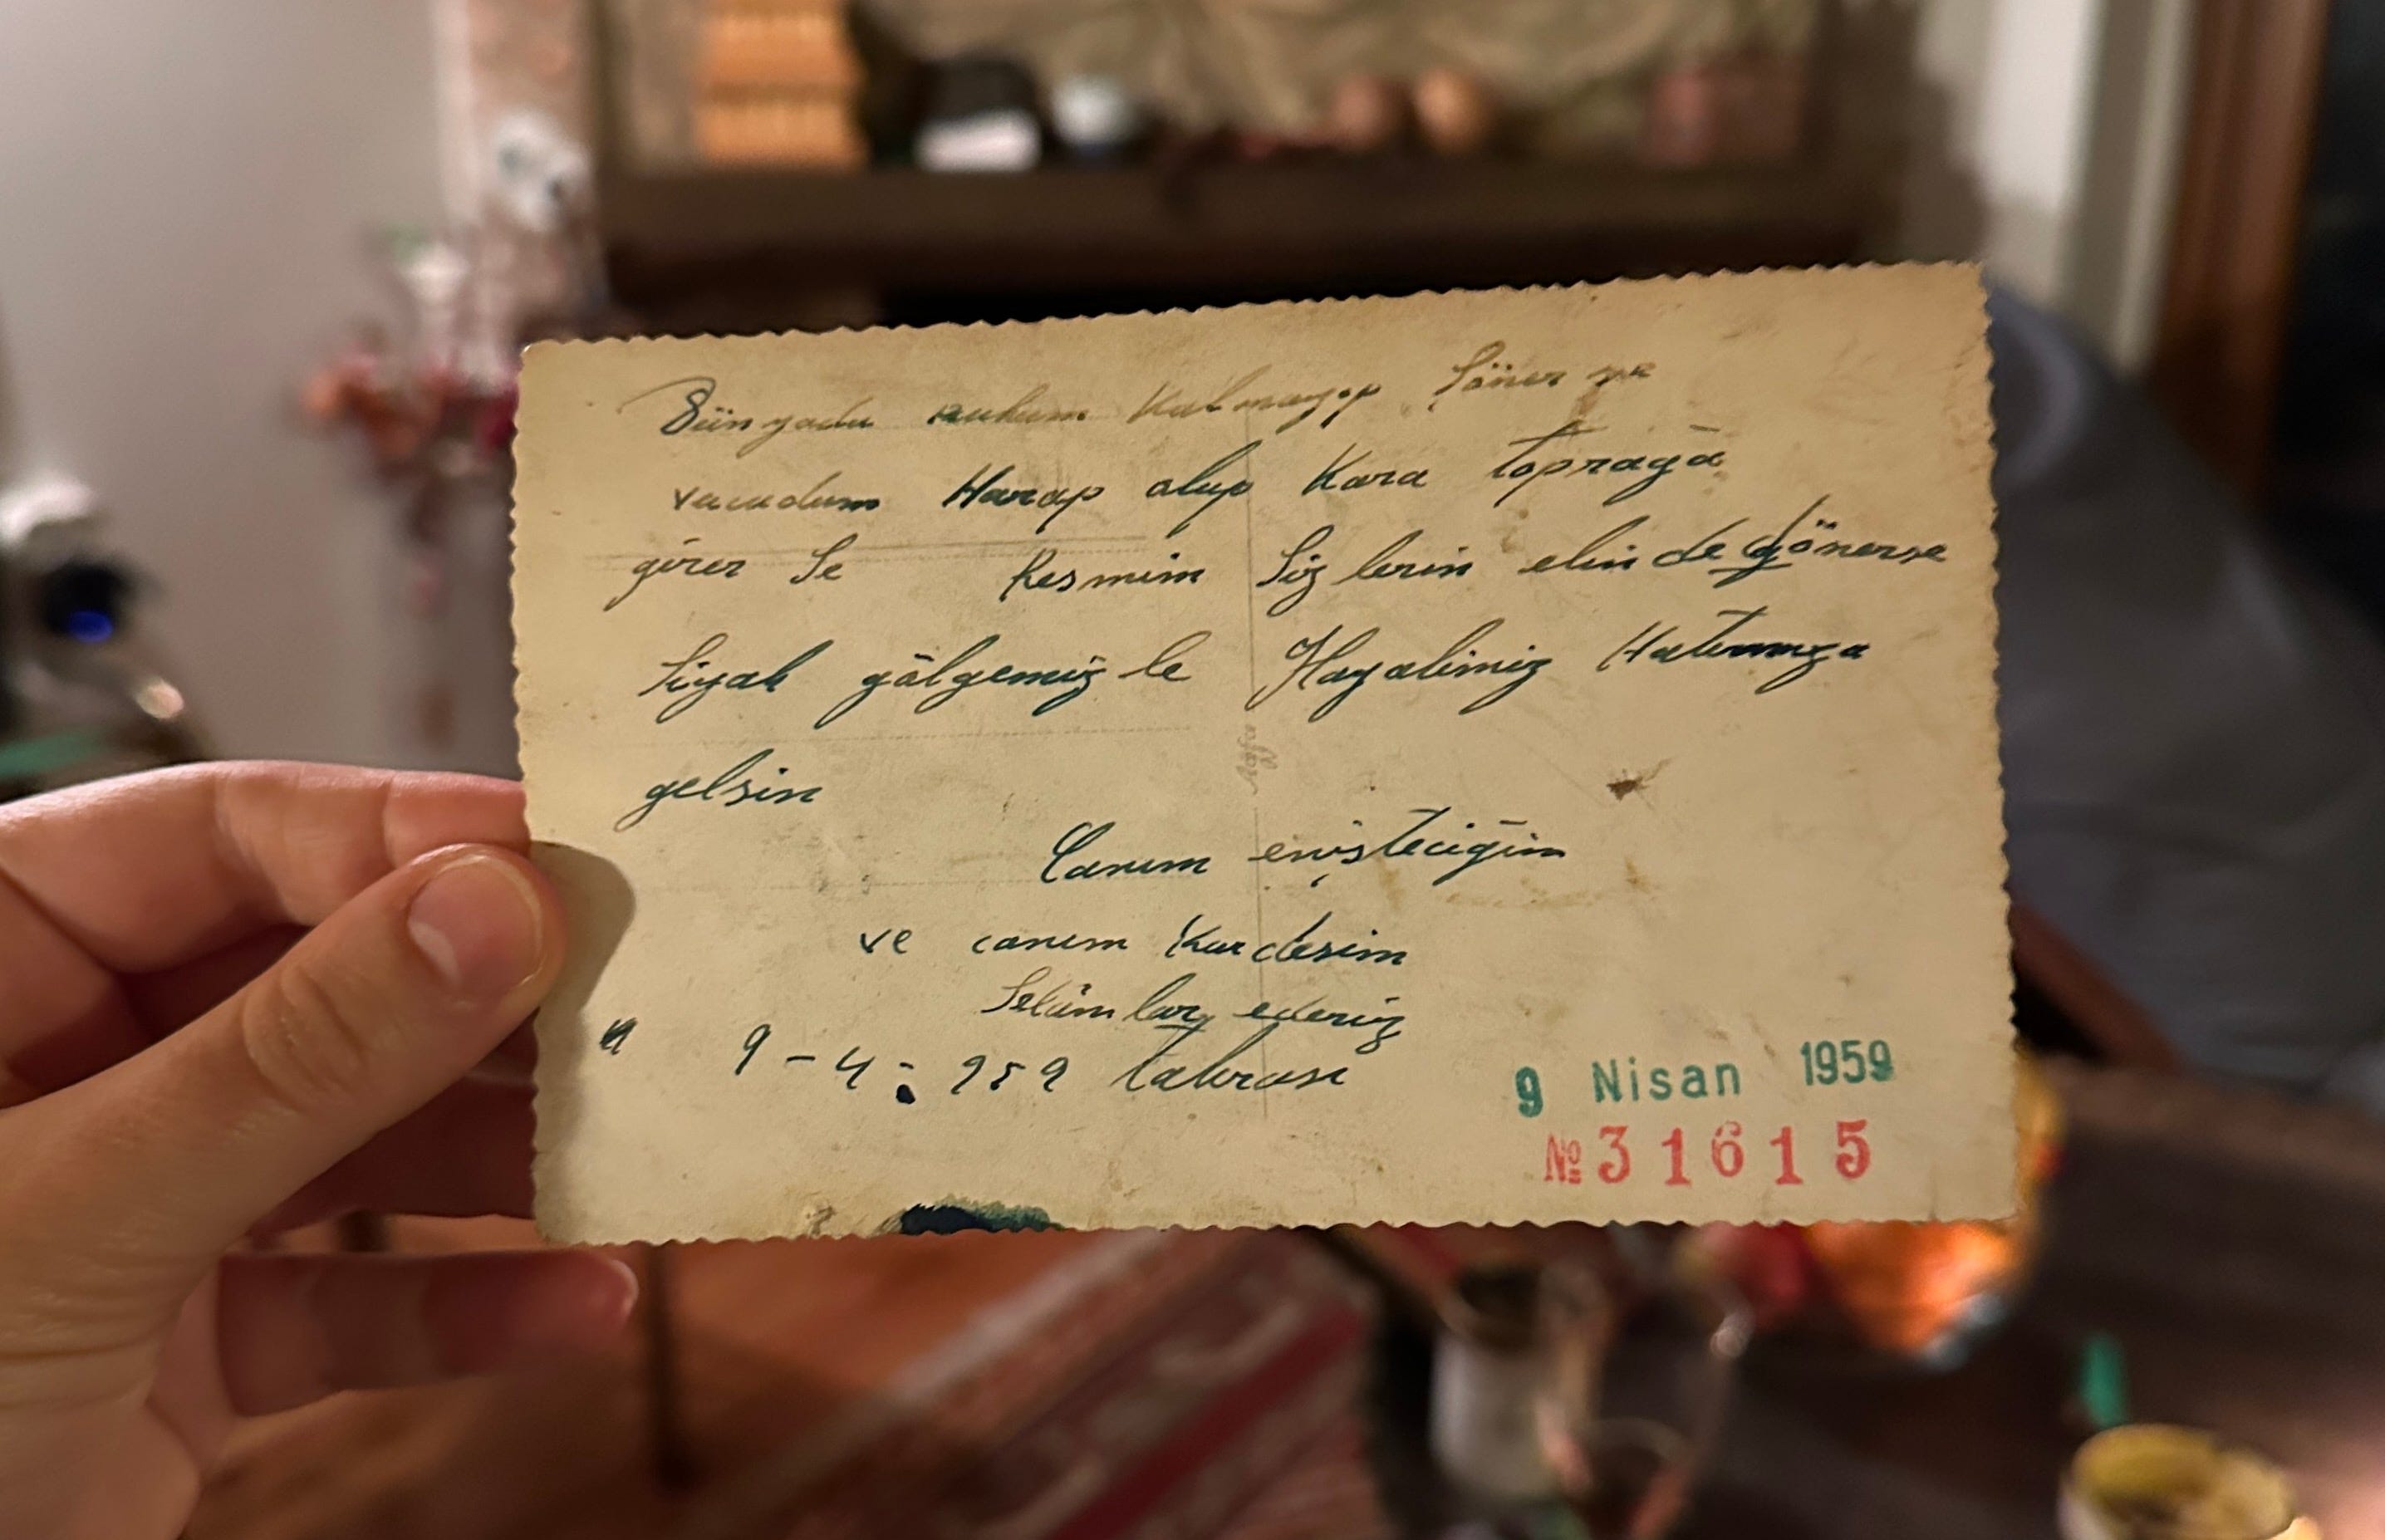 Dünyada ruhum Kalmayıp Söner ve
vucudum Harap olup Kara toprağa
girer se Resmim Siz lerin elin de dönerse
Siyah gölgemiz le Hayalimiz Hatırınıza
gelsin
Canım enişteciğim
ve canım Kardesim
Selâmlar ederiz
9-4-959
9 Nisan 1959
№ 31615
Agfa